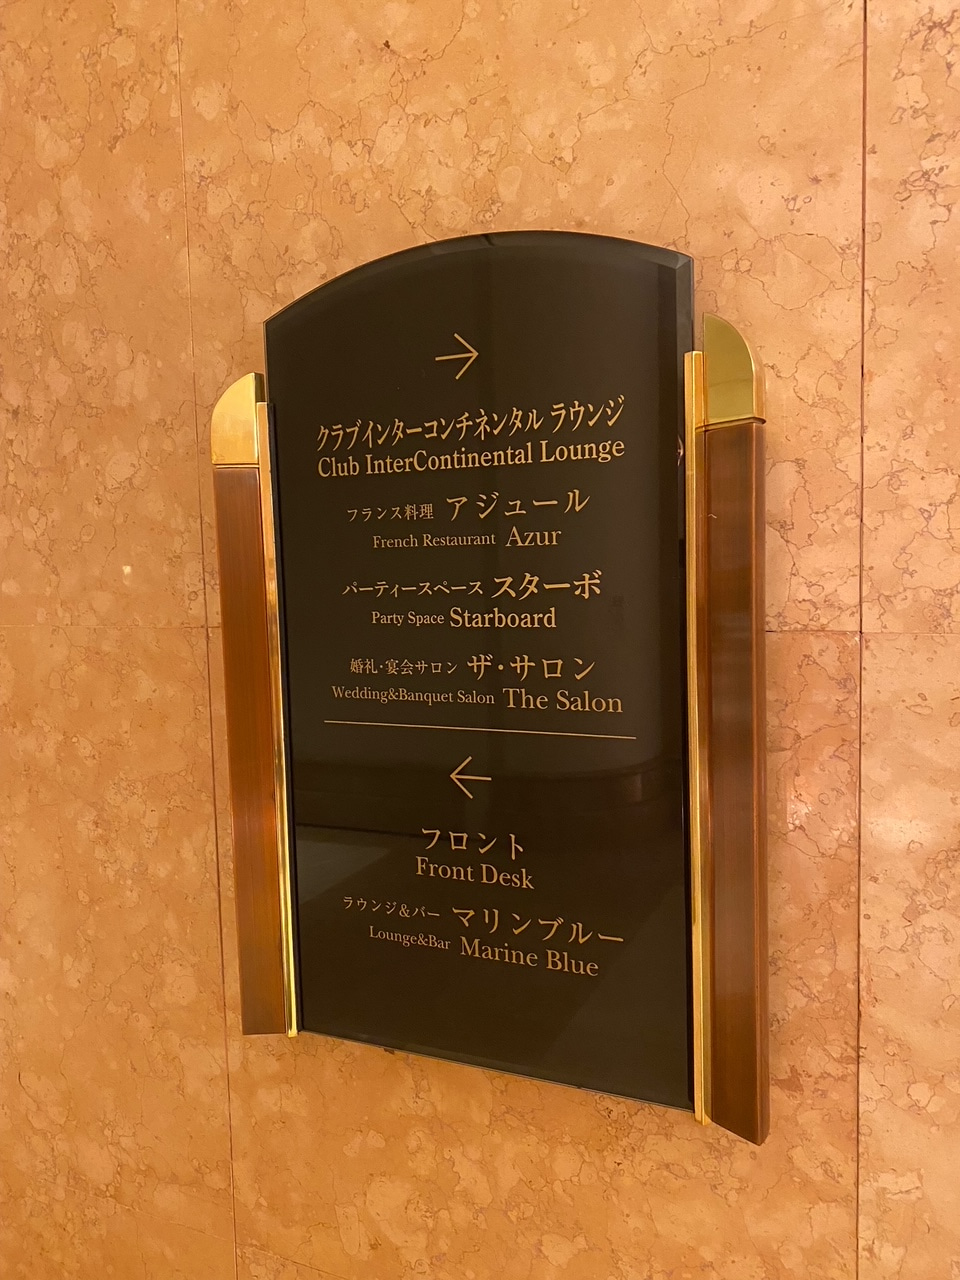 →
クラブインターコンチネンタル ラウンジ
Club InterContinental Lounge
フランス料理 アジュール
French Restaurant Azur
パーティースペース スターボ
Party Space Starboard
婚礼・宴会サロン ザ・サロン
Wedding&Banquet Salon The Salon
←
フロント
Front Desk
ラウンジ&バー マリンブルー
Lounge&Bar Marine Blue